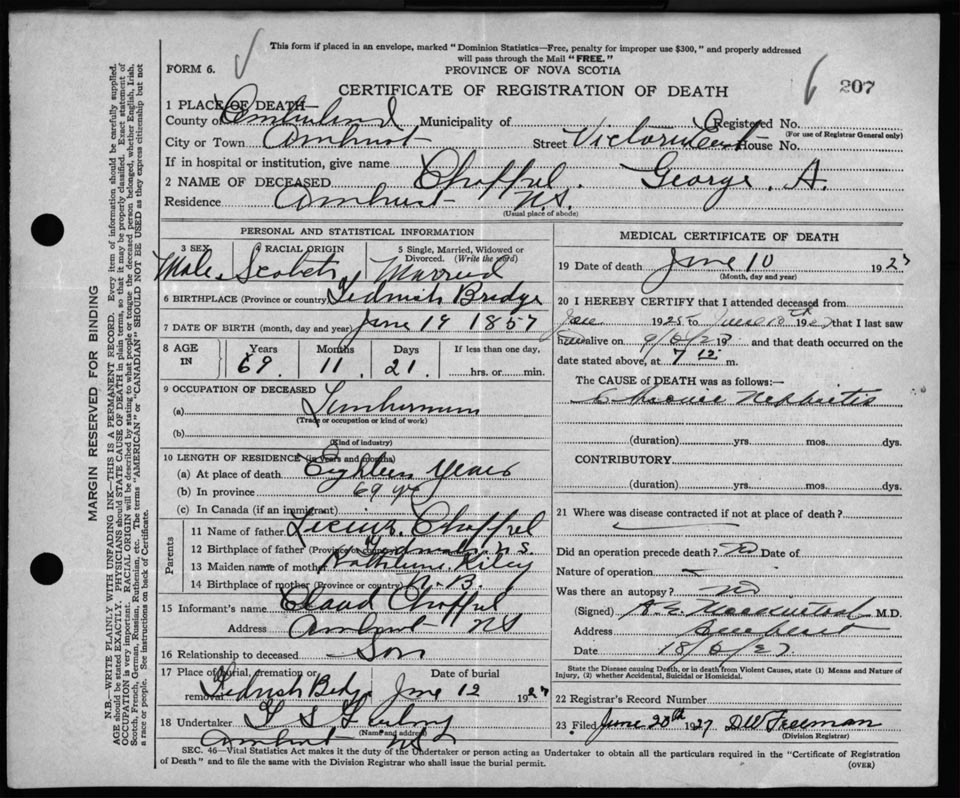 This form if placed in an envelope, marked "Dominion Statistics—Free, penalty for improper use $300," and properly addressed
will pass through the Mail "FREE."
FORM 6.
PROVINCE OF NOVA SCOTIA
6 207
CERTIFICATE OF REGISTRATION OF DEATH
1 PLACE OF DEATH—
County of Cumberland Municipality of Registered No.
(For use of Registrar General only)
City or Town Amherst Street Victoria East House No.
If in hospital or institution, give name
2 NAME OF DECEASED Chappel. George. A.
Residence Amherst N.S.
(Usual place of abode)
PERSONAL AND STATISTICAL INFORMATION
3 SEX 4 RACIAL ORIGIN 5 Single, Married, Widowed or Divorced. (Write the word)
Male Scotch Married
6 BIRTHPLACE (Province or country) Tidnish Bridge
7 DATE OF BIRTH (month, day and year) June 19 1857
8 AGE IN Years Months Days If less than one day,
69. 11. 21. hrs. or min.
9 OCCUPATION OF DECEASED
(a) Lumberman
(Trade or occupation or kind of work)
(b)
(Kind of industry)
10 LENGTH OF RESIDENCE (in years and months)
(a) At place of death Eighteen Years
(b) In province 69 yrs
(c) In Canada (if an immigrant)
Parents
11 Name of father Chappel
12 Birthplace of father (Province or country) Tidnish N.S.
13 Maiden name of mother Riley
14 Birthplace of mother (Province or country) N.B.
15 Informant's name Claud Chappel
Address Amherst NS
16 Relationship to deceased Son
17 Place of burial, cremation or removal Tidnish Bridge Date of burial June 12 1927
18 Undertaker
(Name and address)
Amherst NS
MEDICAL CERTIFICATE OF DEATH
19 Date of death June 10 1927
(Month, day and year)
20 I HEREBY CERTIFY that I attended deceased from
Jan 1925 to June 10th 1927 that I last saw
him alive on 192 and that death occurred on the
date stated above, at 7 15 m.
The CAUSE of DEATH was as follows:—
Chronic Nephritis
(duration) yrs. mos. dys.
CONTRIBUTORY
(duration) yrs. mos. dys.
21 Where was disease contracted if not at place of death?
Did an operation precede death? no Date of
Nature of operation
Was there an autopsy? no
(Signed) M.D.
Address Amherst
Date 18/6/27
State the Disease causing Death, or in death from Violent Causes, state (1) Means and Nature of
Injury, (2) whether Accidental, Suicidal or Homicidal.
22 Registrar's Record Number
23 Filed June 20th 1927 DW Freeman
(Division Registrar)
SEC. 46—Vital Statistics Act makes it the duty of the Undertaker or person acting as Undertaker to obtain all the particulars required in the "Certificate of Registration
of Death" and to file the same with the Division Registrar who shall issue the burial permit.
(OVER)
MARGIN RESERVED FOR BINDING
N.B.—WRITE PLAINLY WITH UNFADING INK—THIS IS A PERMANENT RECORD. Every item of information should be carefully supplied.
AGE should be stated EXACTLY. PHYSICIANS should STATE CAUSE OF DEATH in plain terms, so that it may be properly classified. Exact statement of
OCCUPATION is very important. RACIAL ORIGIN will be described by stating to what people or tongue the deceased person belonged, whether English, Irish,
Scotch, French, German, Russian, Ruthenian, etc. The terms "AMERICAN" or "CANADIAN" SHOULD NOT BE USED as they express citizenship but not
a race or people. See instructions on back of Certificate.